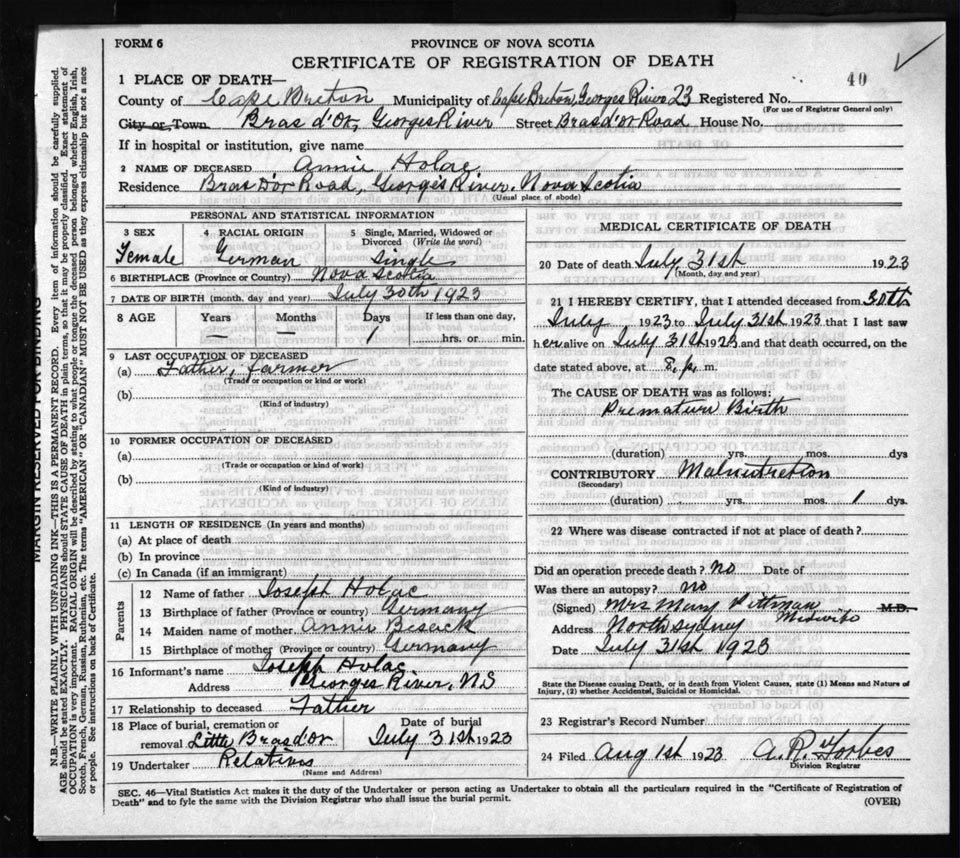 FORM 6
PROVINCE OF NOVA SCOTIA
CERTIFICATE OF REGISTRATION OF DEATH
40
1 PLACE OF DEATH—
County of Cape Breton Municipality of Cape Breton, Georges River 23 Registered No.
(For use of Registrar General only)
City or Town Bras d'Or, Georges River Street Brasd'or Road House No.
If in hospital or institution, give name
2 NAME OF DECEASED Annie Holac
Residence Bras D'or Road, George's River. Nova Scotia
(Usual place of abode)
PERSONAL AND STATISTICAL INFORMATION
3 SEX
Female
4 RACIAL ORIGIN
German
5 Single, Married, Widowed or Divorced (Write the word)
Single
6 BIRTHPLACE (Province or Country) Nova Scotia
7 DATE OF BIRTH (month, day and year) July 30th 1923
8 AGE Years Months Days If less than one day,
— — 1 hrs. or min.
9 LAST OCCUPATION OF DECEASED
(a) Father, farmer
(Trade or occupation or kind or work)
(b)
(Kind of industry)
10 FORMER OCCUPATION OF DECEASED
(a)
(Trade or occupation or kind of work)
(b)
(Kind of industry)
11 LENGTH OF RESIDENCE (In years and months)
(a) At place of death
(b) In province
(c) In Canada (if an immigrant)
Parents
12 Name of father Joseph Holac
13 Birthplace of father (Province or country) Germany
14 Maiden name of mother Annie Beseck
15 Birthplace of mother (Province or country) Germany
16 Informant's name Joseph Holac
Address Georges River, N.S
17 Relationship to deceased Father
18 Place of burial, cremation or removal Little Brasd'or
Date of burial
July 31st 1923
19 Undertaker Relatives
(Name and Address)
MEDICAL CERTIFICATE OF DEATH
20 Date of death July, 31st 1923
(Month, day and year)
21 I HEREBY CERTIFY, that I attended deceased from 30th
July 1923 to July 31st 1923 that I last saw
her alive on July 31st 1923 and that death occurred, on the
date stated above, at 8 p. m.
The CAUSE OF DEATH was as follows:
Premature Birth
(duration) yrs. mos. dys
CONTRIBUTORY Malnutrition
(Secondary)
(duration) yrs. mos. 1 dys.
22 Where was disease contracted if not at place of death?
Did an operation precede death? No Date of
Was there an autopsy? No
(Signed) Mrs Mary Pittman M.D.
Midwife
Address North Sydney
Date July 31st 1923
State the Disease causing Death, or in death from Violent Causes, state (1) Means and Nature of
Injury, (2) whether Accidental, Suicidal or Homicidal.
23 Registrar's Record Number
24 Filed Aug 1st 1923 A. R. Forbes
Division Registrar
SEC. 46—Vital Statistics Act makes it the duty of the Undertaker or person acting as Undertaker to obtain all the particulars required in the "Certificate of Registration of
Death" and to fyle the same with the Division Registrar who shall issue the burial permit.
(OVER)
MARGIN RESERVED FOR BINDING
N.B.—WRITE PLAINLY WITH UNFADING INK—THIS IS A PERMANENT RECORD. Every item of information should be carefully supplied.
AGE should be stated EXACTLY. PHYSICIANS should STATE CAUSE OF DEATH in plain terms, so that it may be properly classified. Exact statement of
OCCUPATION is very important. RACIAL ORIGIN will be described by stating to what people or tongue the deceased person belonged whether English, Irish,
Scotch, French, German, Russian, Ruthenian, etc. The terms "AMERICAN" OR "CANADIAN" MUST NOT BE USED as they express citizenship but not a race
or people. See instructions on back of Certificate.